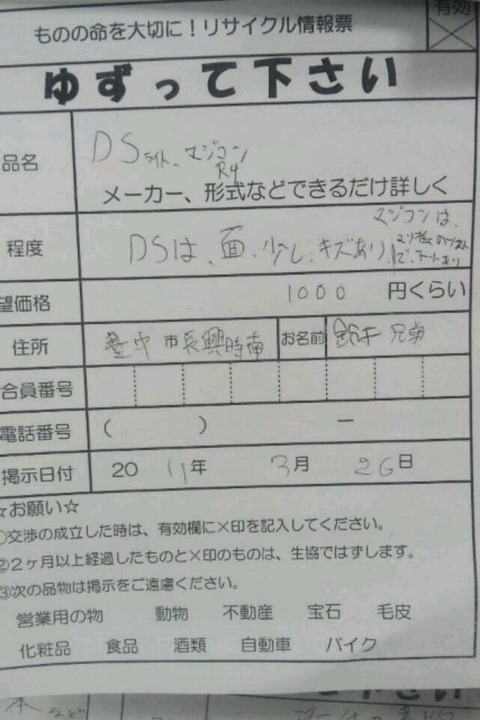 有効
ものの命を大切に！リサイクル情報票
ゆずって下さい
品名
DSライト、マジコン
R4
メーカー、形式などできるだけ詳しく
程度
DSは、面、少し、キズあり、
マジコンは、
望価格
1000 円くらい
住所
臺中市長興時南
お名前
鈴木 兄弟
合員番号
電話番号
( ) ー
掲示日付
2011年 3月 26日
☆お願い☆
①交渉の成立した時は、有効欄に×印を記入してください。
②2ヶ月以上経過したものと×印のものは、生協ではずします。
③次の品物は掲示をご遠慮ください。
営業用の物 動物 不動産 宝石 毛皮
化粧品 食品 酒類 自動車 バイク